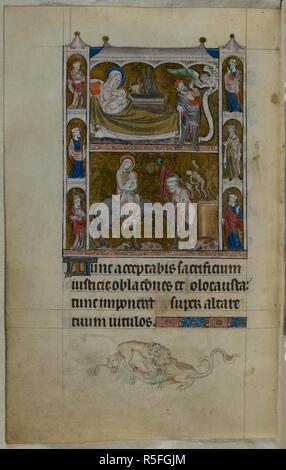 Tunc acceptabis sacrificium
iusticie oblaciones et olocausta:
tunc imponent super altare
tuum uitulos.
alamy
E5FGJM
www.alamy.com